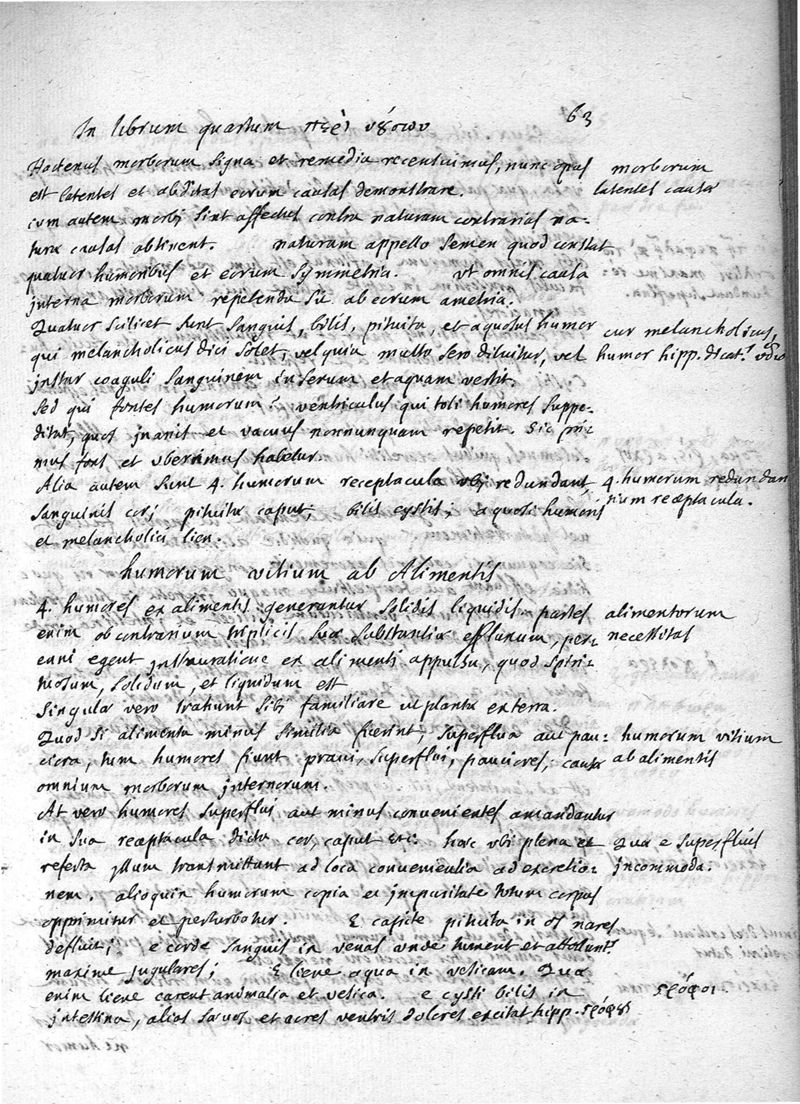 63
In librum quartum περὶ νȣ́σων
Hactenus morborum signa et remedia recensuimus, nunc opus
est latentes et abditas eorum causas demonstrare.
cum autem morbi sint affectus contra naturam contrarias na-
turæ causas obtinent. naturam appello semen quod constat
quatuor humoribus et eorum symmetria. ut omnis causa
interna morborum repetenda sit ab eorum ametria.
Quatuor scilicet sunt sanguis, bilis, pituita, et aquosus humor
qui melancholicus dici solet, vel quia multo sero diluitur, vel
instar coaguli sanguinem in serum et aquam vertit.
Sed qui fontes humorum? ventriculus qui toti humores suppe-
ditat, quos inanis et vacuus nonnunquam repetit. Sic pri-
mus fons et uberrimus habetur.
Alia autem sunt 4. humorum receptacula ubi redundant,
sanguinis cor; pituitæ caput, bilis cystis; aquosi humoris
et melancholici lien.
morborum
latentes causæ
cur melancholicus
humor hipp. dicat.r
4. humorum redundan
tium receptacula.
humorum vitium ab Alimentis
4. humores ex alimentis generantur solidis liquidis partes
enim ob contrarium triplicis suæ substantiæ effluxum, per-
enni egent instauratione ex alimenti appulsu, quod spiri-
tuosum, solidum, et liquidum est
Singula vero trahunt sibi familiare ut planta ex terra.
Quod si alimenta minus similia fuerint, superflua aut pau-
ciora, tum humores fiunt pravi, superflui, pauciores, causæ
omnium morborum internorum.
At vero humores superflui aut minus convenientes amandantur
in sua receptacula dicta cor, caput etc. hæc ubi plena et
referta illum transmittunt ad loca convenientia ad excretio-
nem. alioquin humorum copia et impuritate totum corpus
opprimitur et perturbatur. E capite pituita in os nares
defluit; e corde sanguis in venas unde tument et attollunt.r
maxime jugulares; E liene aqua in vesicam. Qua
enim liene carent animalia et vesica. e cysti bilis in
intestina, alias sævos et acres ventris dolores excitat hipp. στρόφȣς
alimentorum
necessitas
humorum vitium
ab alimentis
Quæ e superfluis
incommoda.
στρόφοι.
ne humor